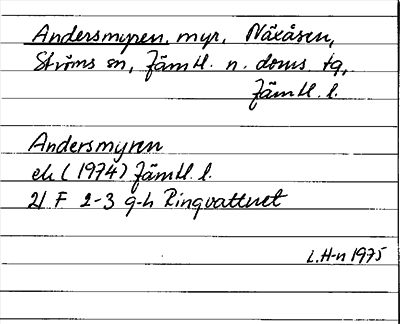 Andersmyren, myr, Näxåsen,
Ströms sn, Jämtl. n. doms. tg,
Jämtl. l.
Andersmyren
ek (1974) Jämtl. l.
21 F 2-3 g-h Ringvattnet
L.H-n 1975